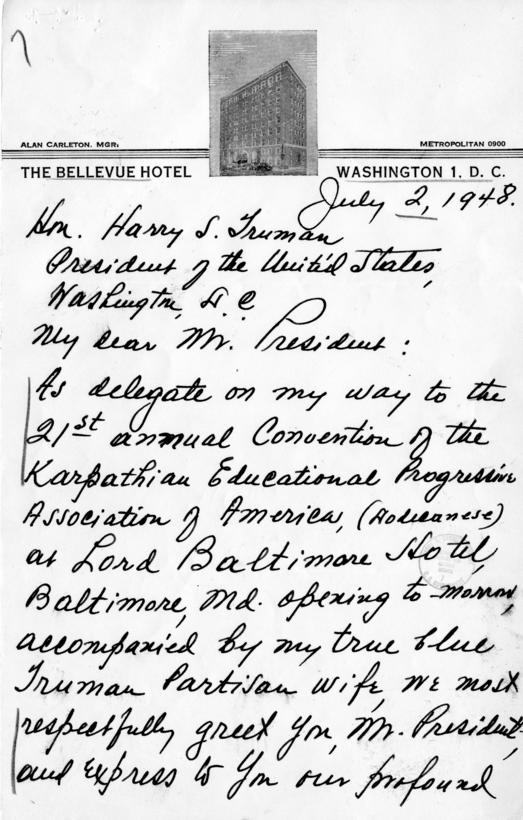 ALAN CARLETON, MGR.
METROPOLITAN 0900
THE BELLEVUE HOTEL
WASHINGTON 1, D. C.
July 2, 1948.
Hon. Harry S. Truman
President of the United States,
Washington, D. C.
My dear Mr. President:
As delegate on my way to the
21st annual Convention of the
Karpathian Educational Progressive
Association of America, (Dodecanese)
at Lord Baltimore Hotel,
Baltimore, Md. opening to-morrow,
accompanied by my true blue
Truman Partisan wife, we most
respectfully greet You, Mr. President,
and express to You our profound